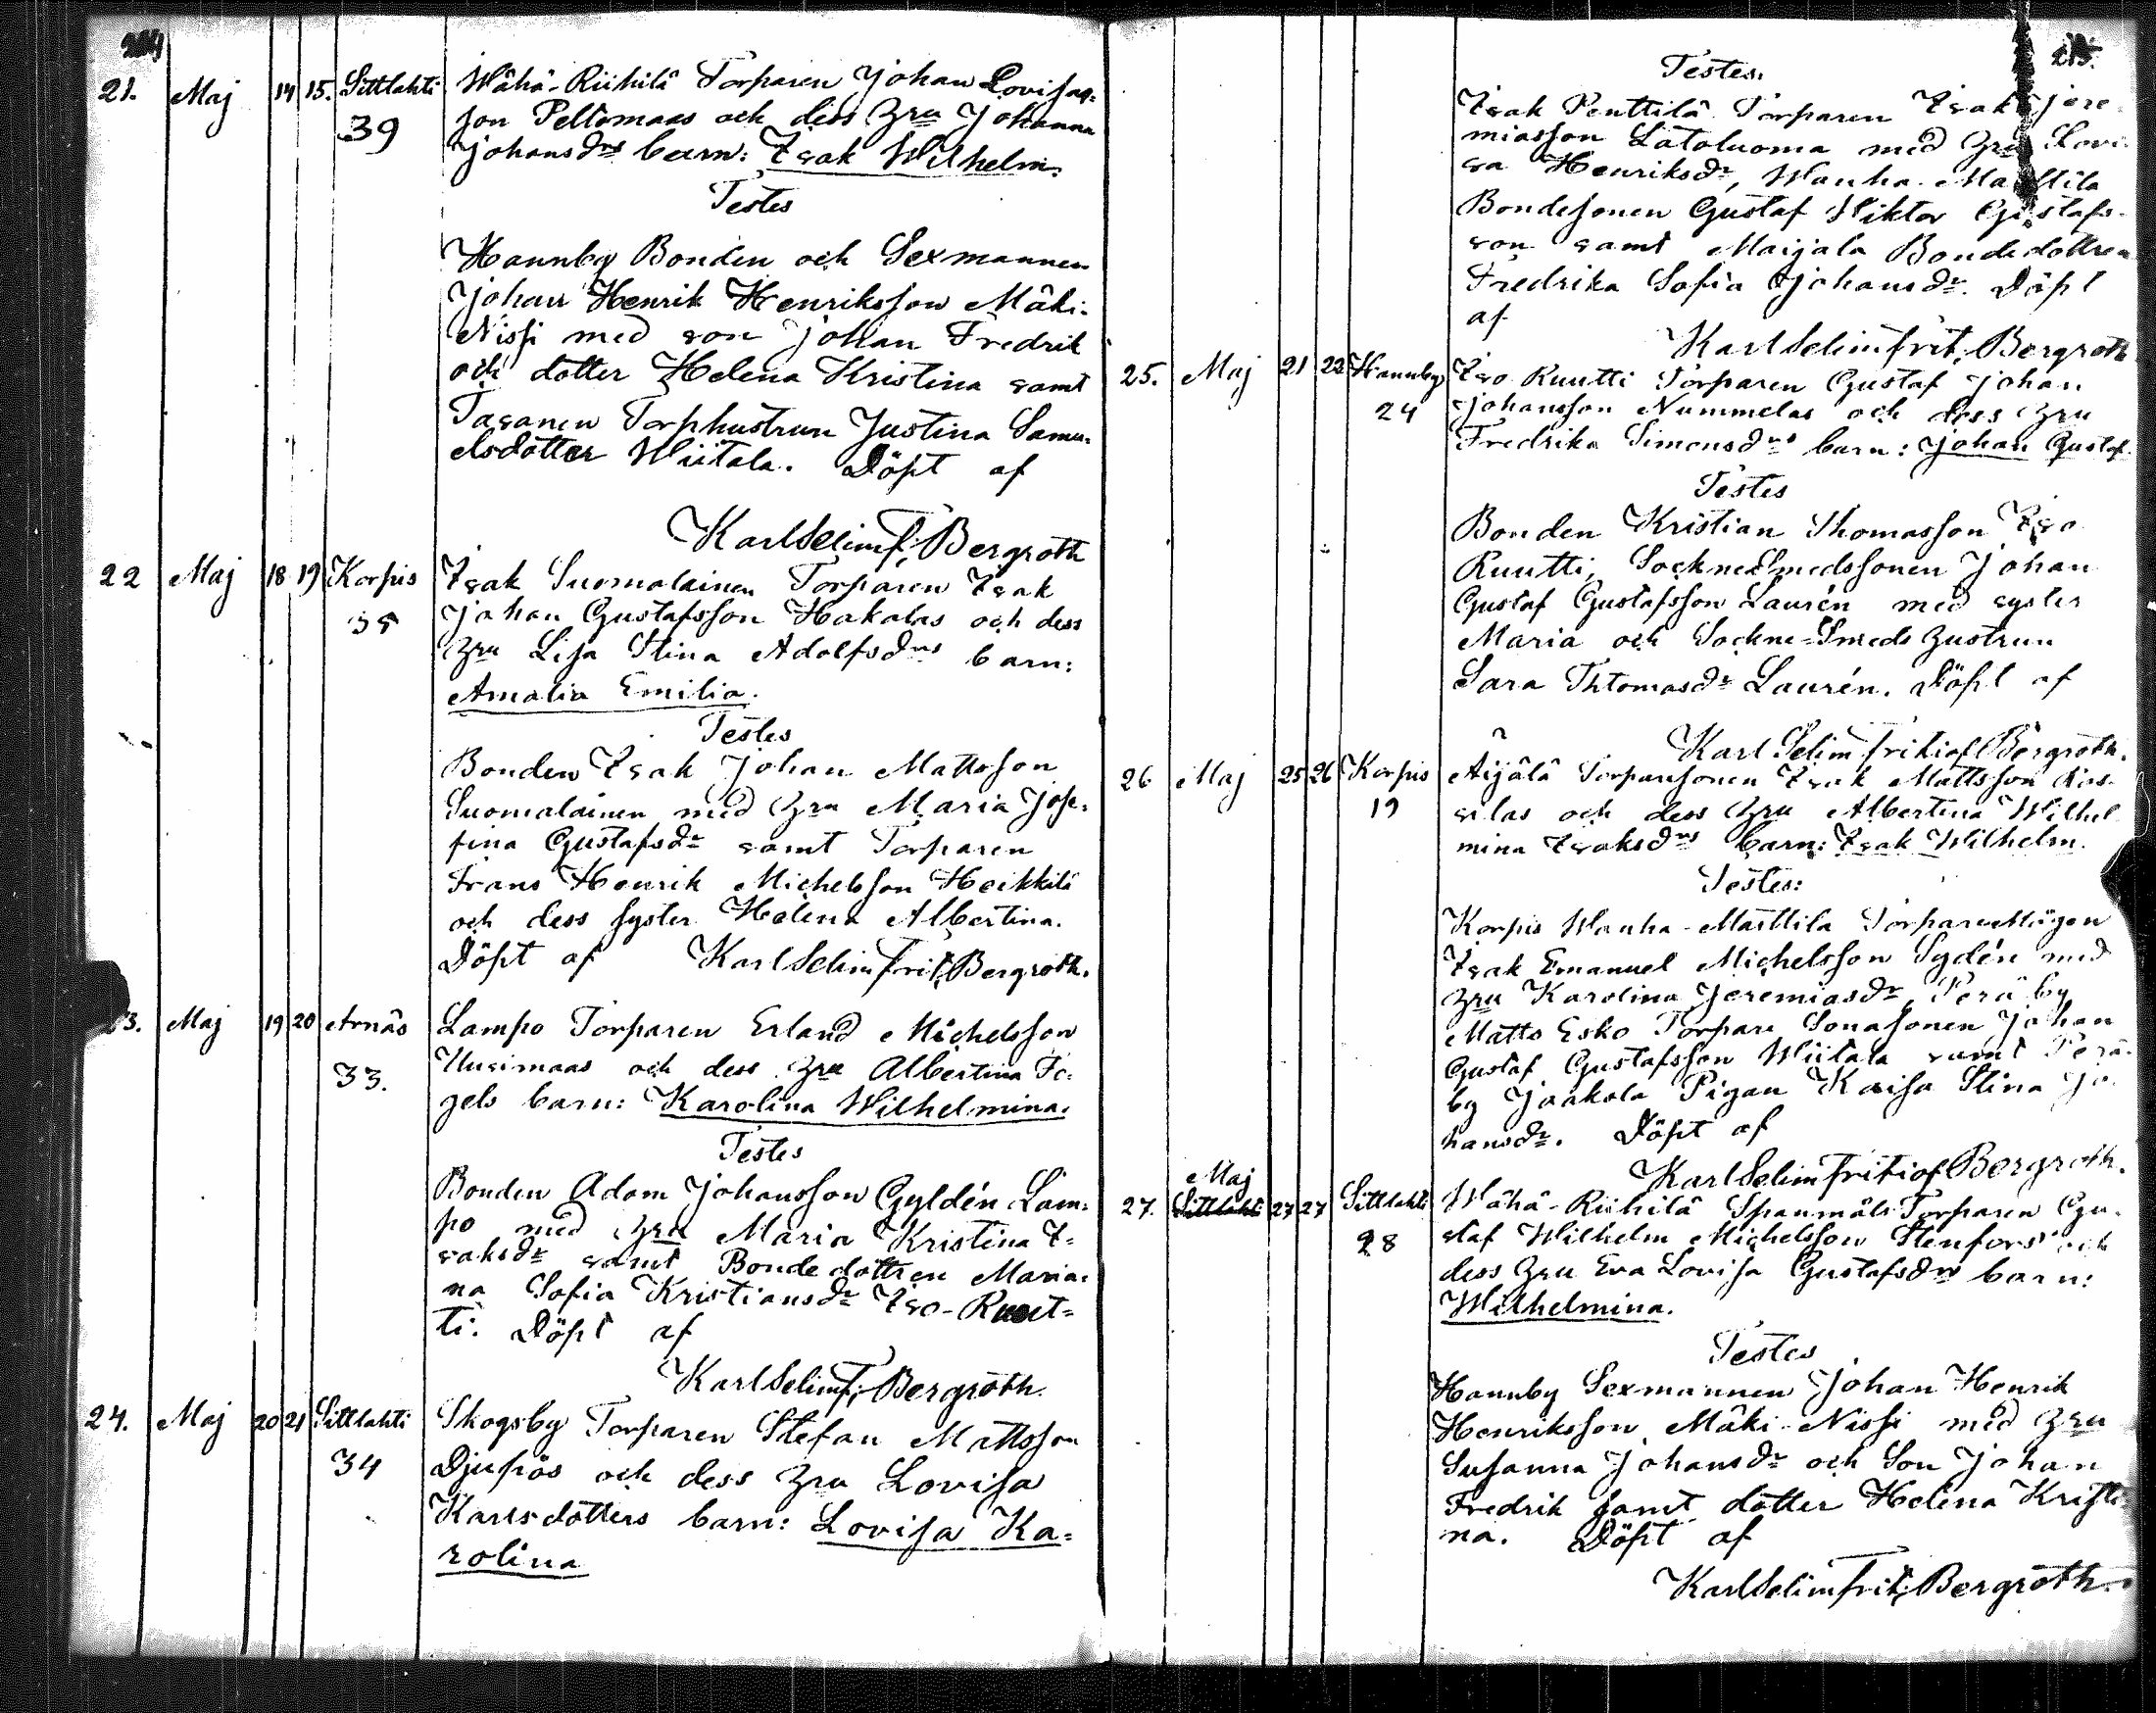 21. Maj 14 15. Sittlahti Wähä-Riihilä Torparen Johan Lovisas-
39 son Peltomaas och dess Hru Johanna
Johansdrs barn: Isak Wilhelm.
Testes
Hannby Bonden och Sexmannen
Johan Henrik Henriksson Mäki-
Nissi med son Johan Fredrik
och dotter Helena Kristina samt
Tasanen Torphustrun Justina Samu-
elsdotter Wiitala. Döpt af
Karl Selim F. Bergroth
22 Maj 18 19 Korpis Isak Suomalainen Torparen Isak
35 Johan Gustafsson Hakalas och dess
Hru Lisa Stina Adolfsdrs barn:
Amalia Emilia.
Testes
Bonden Isak Johan Mattsson
Suomalainen med Hru Maria Jose-
fina Gustafsdr samt Torparen
Frans Henrik Michelsson Heikkilä
och dess syster Helena Albertina.
Döpt af Karl Selim Frit. Bergroth.
3. Maj 19 20 Arnäs Lampo Torparen Erland Michelsson
33. Uusimaas och dess Hru Albertina Fo-
gels barn: Karolina Wilhelmina.
Testes
Bonden Adam Johansson Gyldén Lam-
po med Hru Maria Kristina I-
saksdr samt Bondedottren Maria-
na Sofia Kristiansdr Iso-Ruut-
ti. Döpt af
Karl Selim F. Bergroth.
24. Maj 20 21 Sittlahti Skogsby Torparen Stefan Mattsson
34 Djupös och dess Hru Lovisa
Karlsdotters barn: Lovisa Ka-
rolina
215.
Testes.
Isak Penttilä Torparen Isak Jere-
miasson Latoluoma med Hru Lovi-
sa Henriksdr, Wanha-Mattila
Bondesonen Gustaf Wiktor Gustafs-
son samt Maijala Bondedottren
Fredrika Sofia Johansdr. Döpt
af
Karl Selim Frit. Bergroth
25. Maj 21 22 Hannby Iso Ruutti Torparen Gustaf Johan
24 Johansson Nummelas och dess Hru
Fredrika Simonsdrs barn: Johan Gustaf.
Testes
Bonden Kristian Thomasson Iso
Ruutti, Sockne Smedssonen Johan
Gustaf Gustafsson Laurén med syster
Maria och Sockne-Smeds Hustrun
Sara Thomasdr Laurén. Döpt af
Karl Selim Fritiof Bergroth.
26 Maj 25 26 Korpis Äijälä Torparesonen Isak Mattsson
19 silas och dess Hru Albertina Wilhel-
mina Isaksdrs barn: Isak Wilhelm.
Testes:
Korpis Wanha-Mattila Torparemågen
Isak Emanuel Michelsson Sydén med
Hru Karolina Jeremiasdr, Perä by
Matts Esko Torpare Sonasonen Johan
Gustaf Gustafsson Wiitala samt Perä-
by Jaakola Pigan Kaisa Stina Jo-
hansdr. Döpt af
Karl Selim Fritiof Bergroth.
Maj
27. Sittlahti 27 27 Sittlahti Wähä-Riihilä Spanmåls Torparen Gu-
28 staf Wilhelm Michelsson Stenfors och
dess Hru Eva Lovisa Gustafsdrs barn:
Wilhelmina.
Testes
Hannby Sexmannen Johan Henrik
Henriksson Mäki-Nissi med Hru
Susanna Johansdr och Son Johan
Fredrik samt dotter Helena Kristi-
na. Döpt af
Karl Selim Frit. Bergroth.